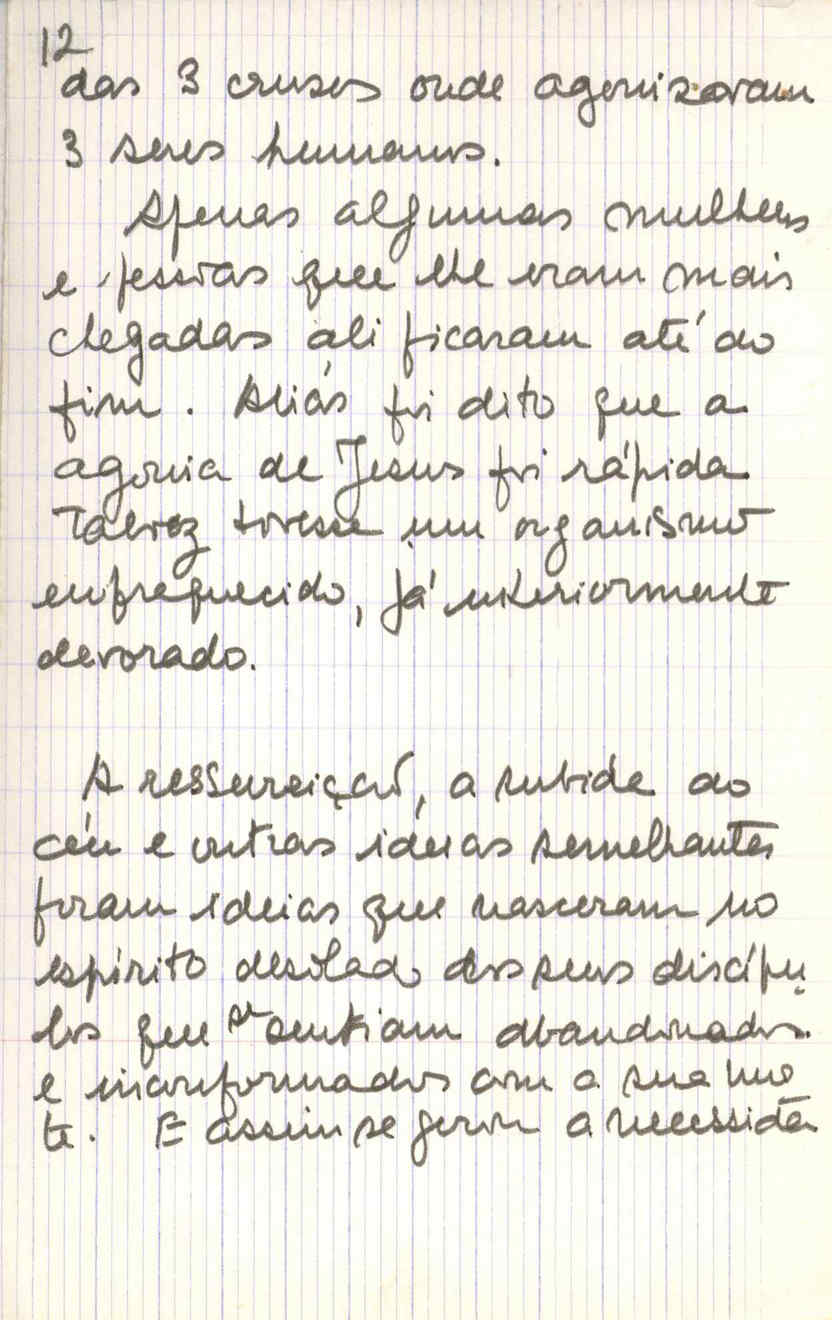 12
das 3 cruses onde agonizavam
3 seres humanos.
Apenas algumas mulheres
e pessoas que lhe eram mais
chegadas ali ficaram até ao
fim. Aliás foi dito que a
agonia de Jesus foi rápida
Talvez tivesse um organismo
enfraquecido, já interiormente
devorado.
A ressureição, a subida ao
céu e outras ideias semelhantes
foram ideias que nasceram no
espírito desolado dos seus discípu
los que se sentiam abandonados
e inconformados com a sua mor
te. E assim se gerou a necessida